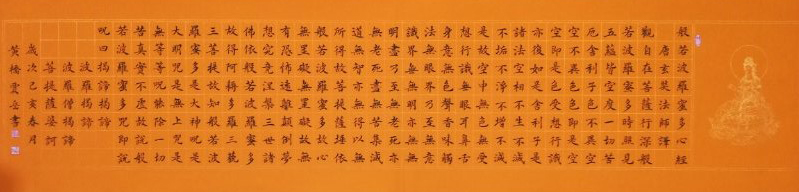 般若波羅蜜多心經
唐玄奘法師譯
觀自在菩薩行深般
若波羅蜜多時照見
五蘊皆空度一切苦
厄舍利子色不異空
空不異色色即是空
空即是色受想行識
亦復如是舍利子是
諸法空相不生不滅
不垢不淨不增不減
是故空中無色無受
想行識無眼耳鼻舌
身意無色聲香味觸
法無眼界乃至無意
識界無無明亦無無
明盡乃至無老死亦
無老死盡無苦集滅
道無智亦無得以無
所得故菩提薩埵依
般若波羅蜜多故心
無罣礙無罣礙故無
有恐怖遠離顛倒夢
想究竟涅槃三世諸
佛依般若波羅蜜多
故得阿耨多羅三藐
三菩提故知般若波
羅蜜多是大神呪是
大明呪是無上呪是
無等等呪能除一切
苦真實不虛故說般
若波羅蜜多呪即說
呪曰揭諦揭諦
波羅揭諦
波羅僧揭諦
菩提薩婆訶
歲次己亥春月
黃橋雲書